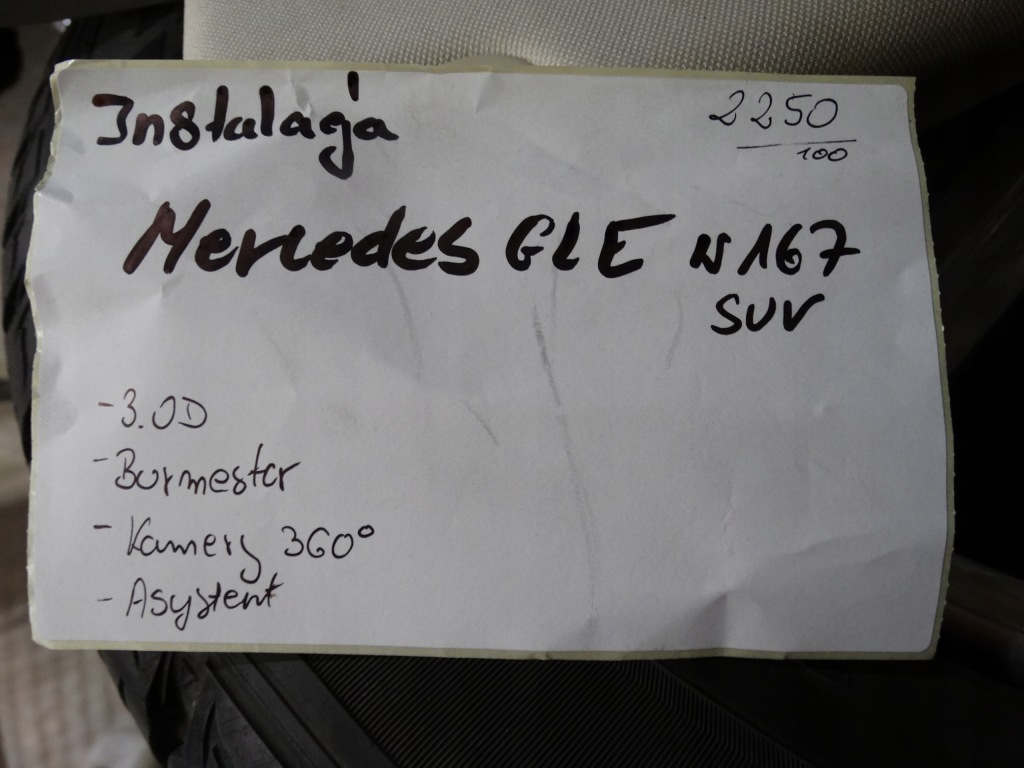 Instalacja
2250
100
Mercedes GLE W167
SUV
- 3.0D
- Burmester
- Kamery 360°
- Asystent